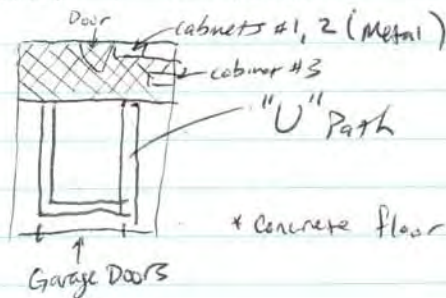 Door
cabinets #1, 2 (Metal)
cabinet #3
"U" Path
* Concrete floor
Garage Doors